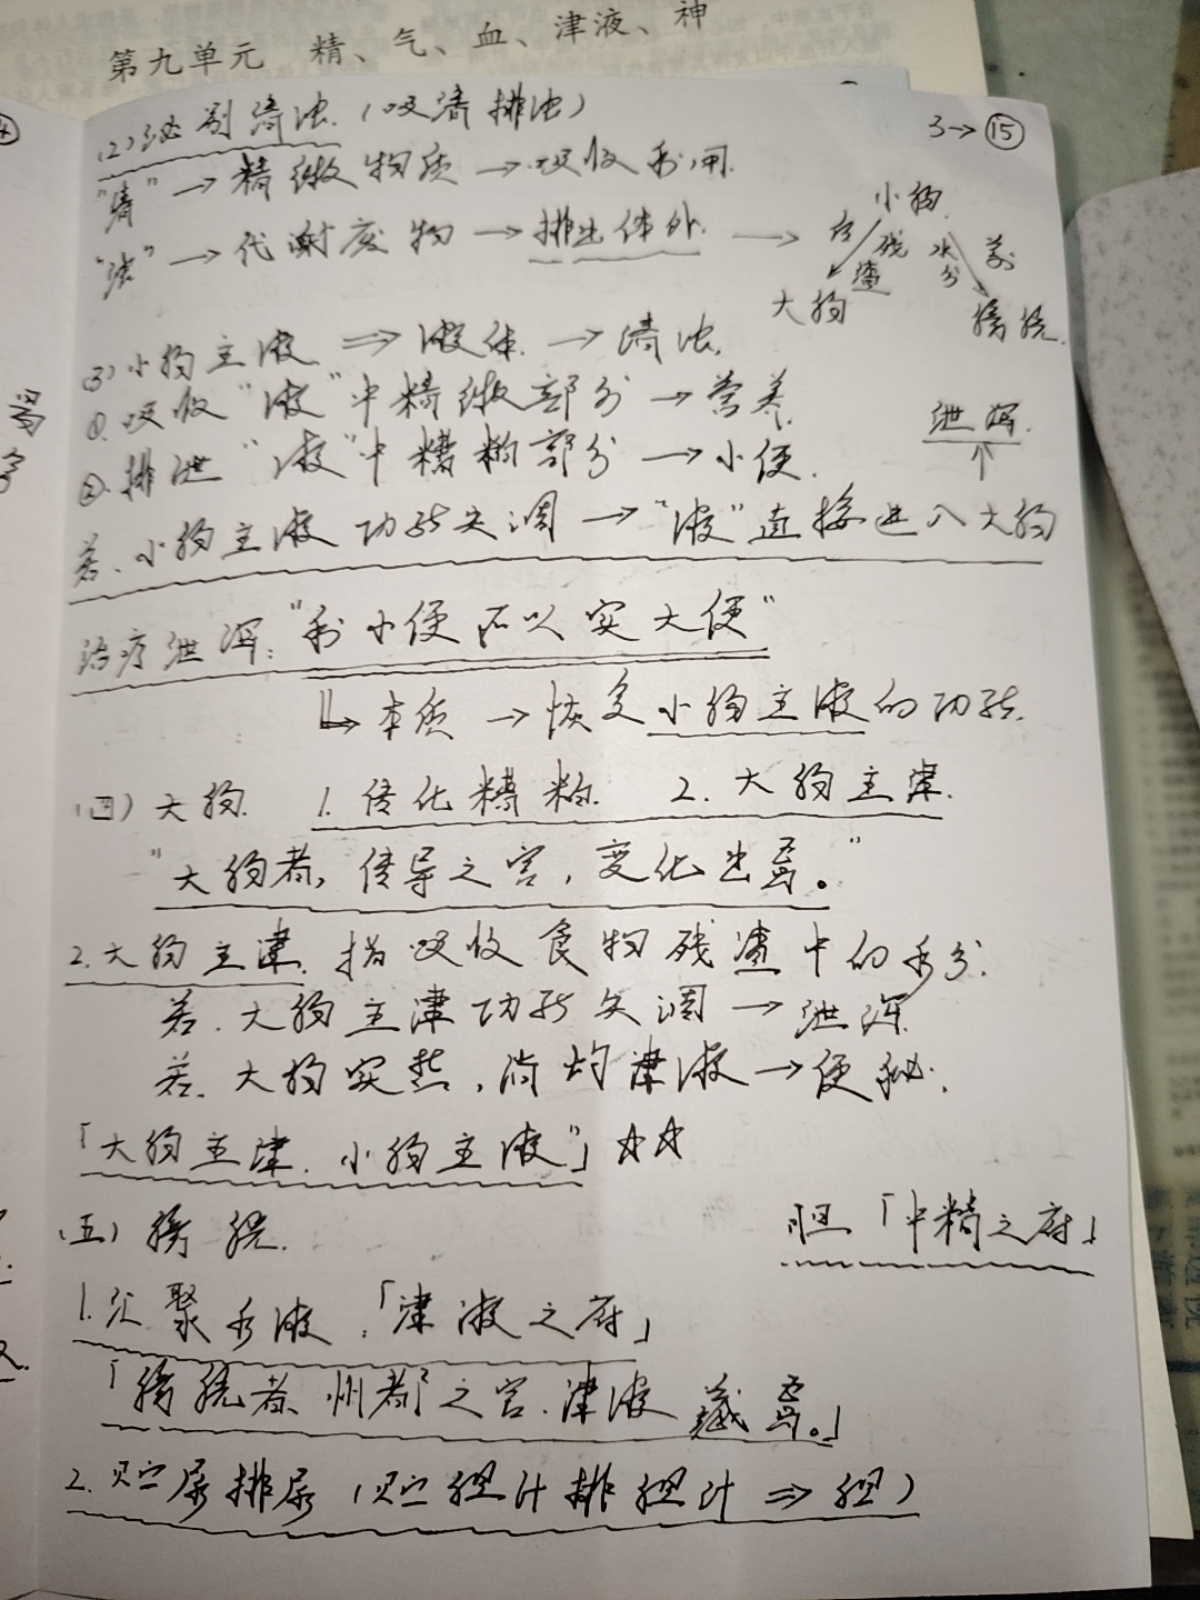 第九单元 精、气、血、津液、神
(2)泌别清浊.(吸清排浊)
3→⑮
"清"→精微物质→吸收利用.
"浊"→代谢废物→排出体外.→
小肠
右 残渣 水分 前
大肠 膀胱.
(3)小肠主液⇒液体.→清浊.
①.吸收"液"中精微部分→营养.
②.排泄"液"中糟粕部分→小便.
泄泻.
↑
若、小肠主液功能失调→"液"直接进入大肠
治疗泄泻:"利小便所以实大便"
↳本质→恢复小肠主液的功能.
(四)大肠. 1.传化糟粕. 2.大肠主津.
"大肠者,传导之官,变化出焉。"
2.大肠主津.指吸收食物残渣中的水分.
若.大肠主津功能失调→泄泻.
若.大肠实热,消灼津液→便秘.
「大肠主津.小肠主液"」☆☆
(五)膀胱.
胆「中精之府」
1.汇聚水液:「津液之府」
「膀胱者、州都之官.津液藏焉。」
2.贮尿排尿(贮胆汁排胆汁⇒胆)